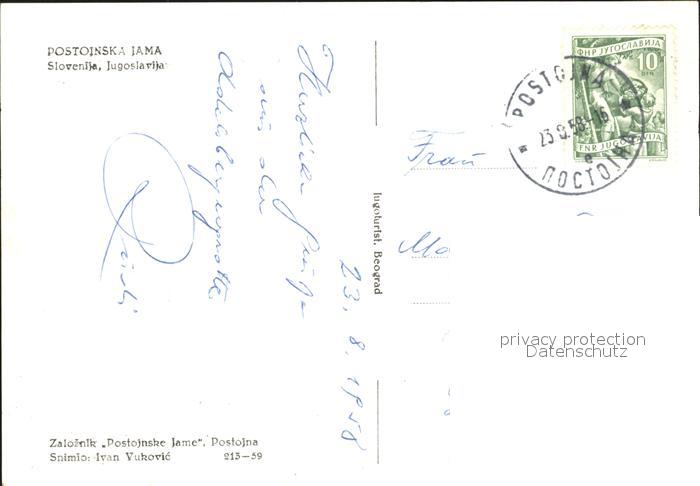 POSTOJNSKA JAMA
Slovenija, Jugoslavija
Herzliche Grüße
aus der
Adelsbergergrotte
23. 8. 1958
Jugoturist. Beograd
ФНР ЈУГОСЛАВИЈА
10
DIN
FNR JUGOSLAVIJA
POSTOJNA
23.8.58-16
e
ПОСТОЈНА
Frau
privacy protection
Datenschutz
Založnik „Postojnske Jame“, Postojna
Snimio: Ivan Vuković 213—59